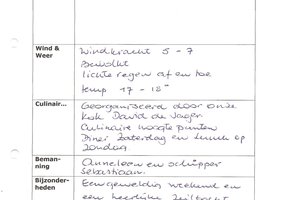 Wind & Weer
Windkracht 5 - 7
Bewolkt
lichte regen af en toe
temp 17 - 18°
Culinair...
Georganiseerd door onze
Kok David de Jager
Culinaire hoogte punten
Diner Zaterdag en lunch op
Zondag
Beman-
ning
Anneleen en schipper
Sebastiaan.
Bijzonder-
heden
Een geweldig weekend en
een heerlijke zeiltocht